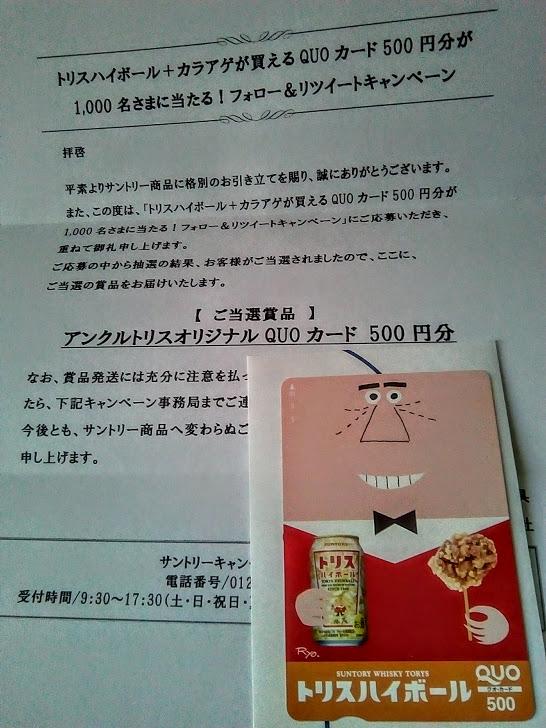 トリスハイボール＋カラアゲが買えるQUOカード500円分が
1,000名さまに当たる！フォロー＆リツイートキャンペーン
拝啓
平素よりサントリー商品に格別のお引き立てを賜り、誠にありがとうございます。
また、この度は、「トリスハイボール＋カラアゲが買えるQUOカード500円分が
1,000名さまに当たる！フォロー＆リツイートキャンペーン」にご応募いただき、
重ねて御礼申し上げます。
ご応募の中から抽選の結果、お客様がご当選されましたので、ここに、
ご当選の賞品をお届けいたします。
【 ご当選賞品 】
アンクルトリスオリジナルQUOカード 500円分
なお、賞品発送には充分に注意を払っ
たら、下記キャンペーン事務局までご連
今後とも、サントリー商品へ変わらぬご
申し上げます。
県
社
サントリーキャン
電話番号/012
受付時間/9:30～17:30(土・日・祝日・
SUNTORY
トリス
ハイボール
Ryo.
SUNTORY WHISKY TORYS
トリスハイボール
QUO
クオ・カード
500